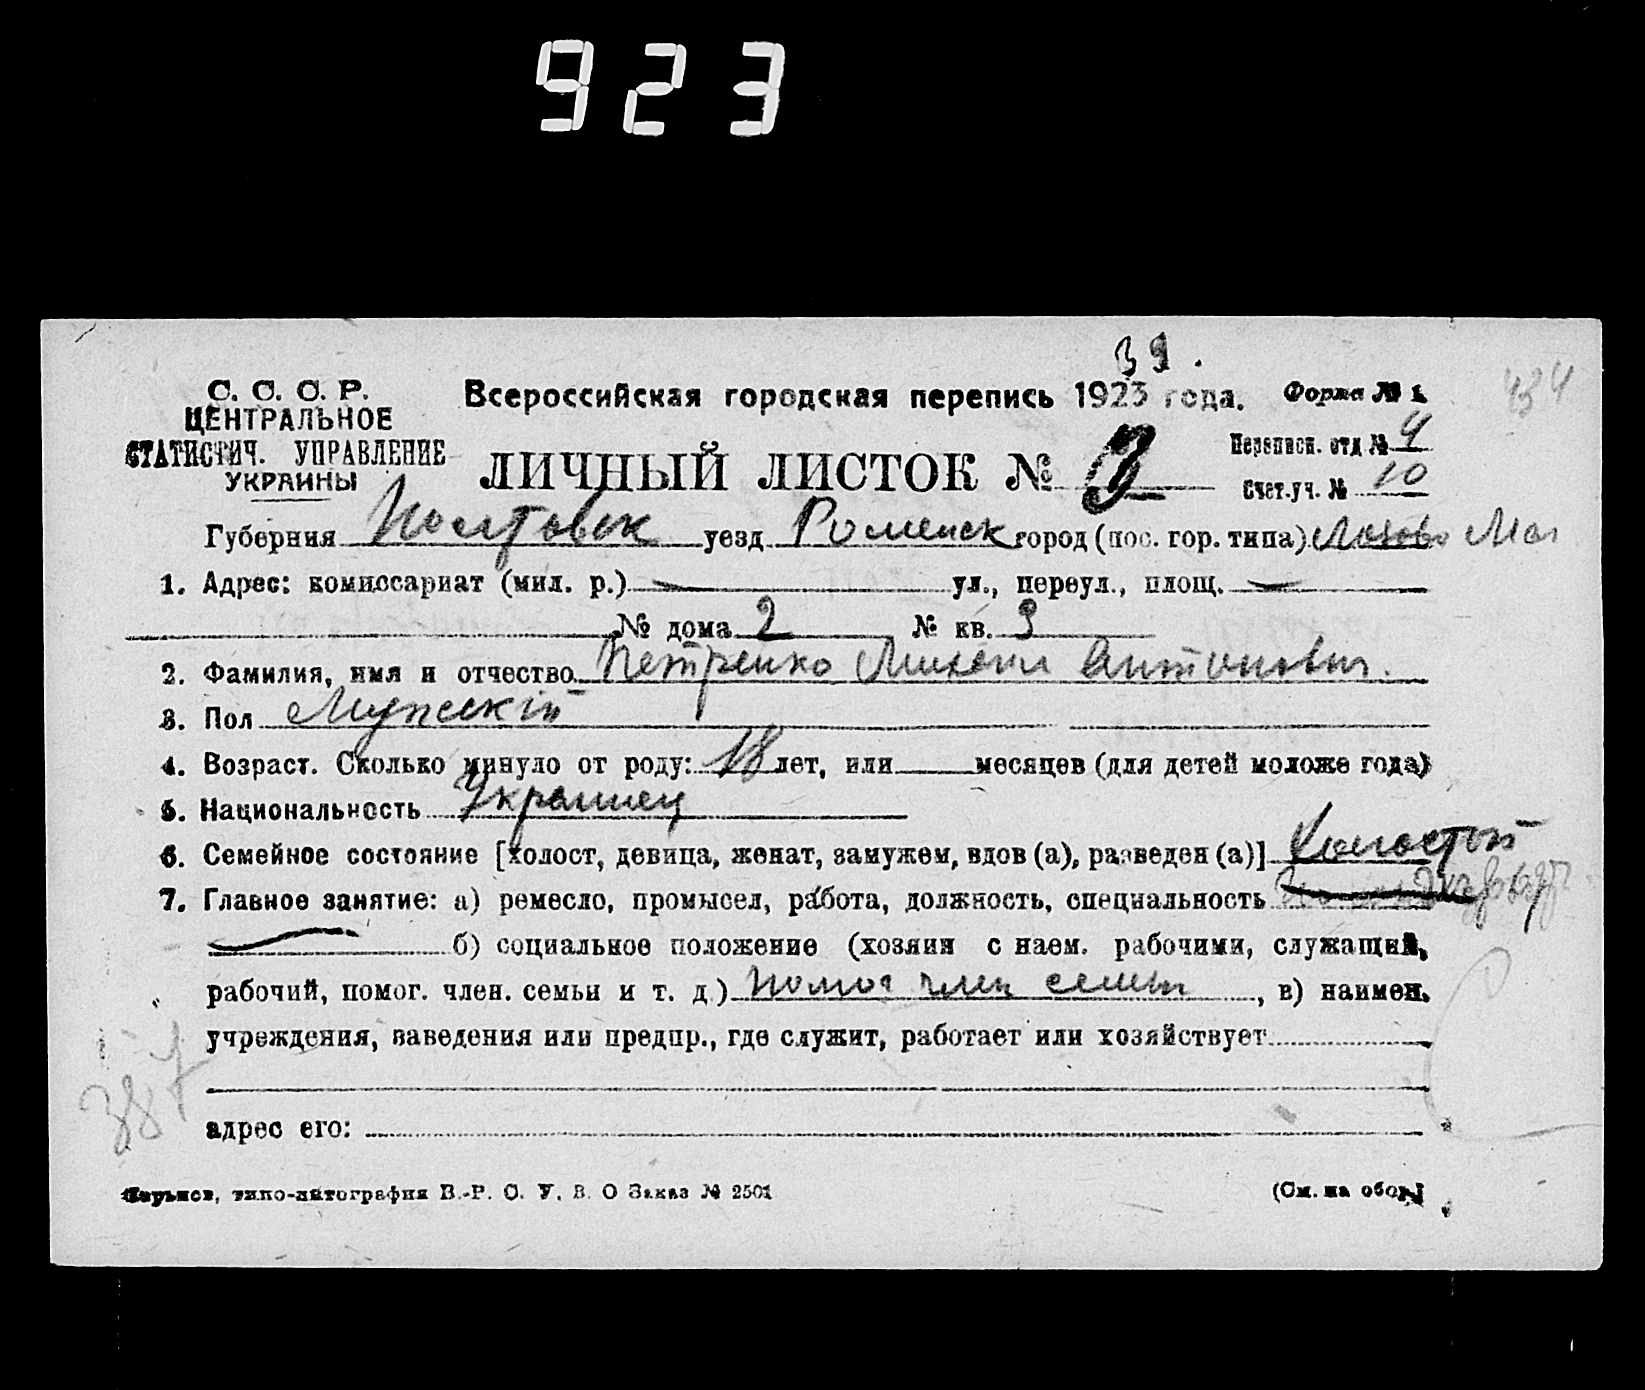 923
39.
С. С. С. Р.
ЦЕНТРАЛЬНОЕ
СТАТИСТИЧ. УПРАВЛЕНИЕ
УКРАИНЫ
Всероссийская городская перепись 1923 года.
Форма № 1.
434
ЛИЧНЫЙ ЛИСТОК № 3
Переписн. отд № 4
Счет.уч. № 10
Губерния Полтавск уезд Роменск город (пос. гор. типа)
1. Адрес: комиссариат (мил. р.) — ул., переул., площ. —
№ дома 2 № кв. 3
2. Фамилия, имя и отчество Петренко Михаил Антонович.
3. Пол Мужский
4. Возраст. Сколько минуло от роду: 18 лет, или месяцев (для детей моложе года)
5. Национальность Украинец
6. Семейное состояние [холост, девица, женат, замужем, вдов (а), разведен (а)] Холостой
7. Главное занятие: а) ремесло, промысел, работа, должность, специальность
б) социальное положение (хозяин с наем. рабочими, служащий,
рабочий, помог. член. семьи и т. д.) помог член семьи, в) наимен.
учреждения, заведения или предпр., где служит, работает или хозяйствует
387
адрес его:
Харьков, типо-литография В.-Р. С. У. В. О Заказ № 2501
(См. на обор.)